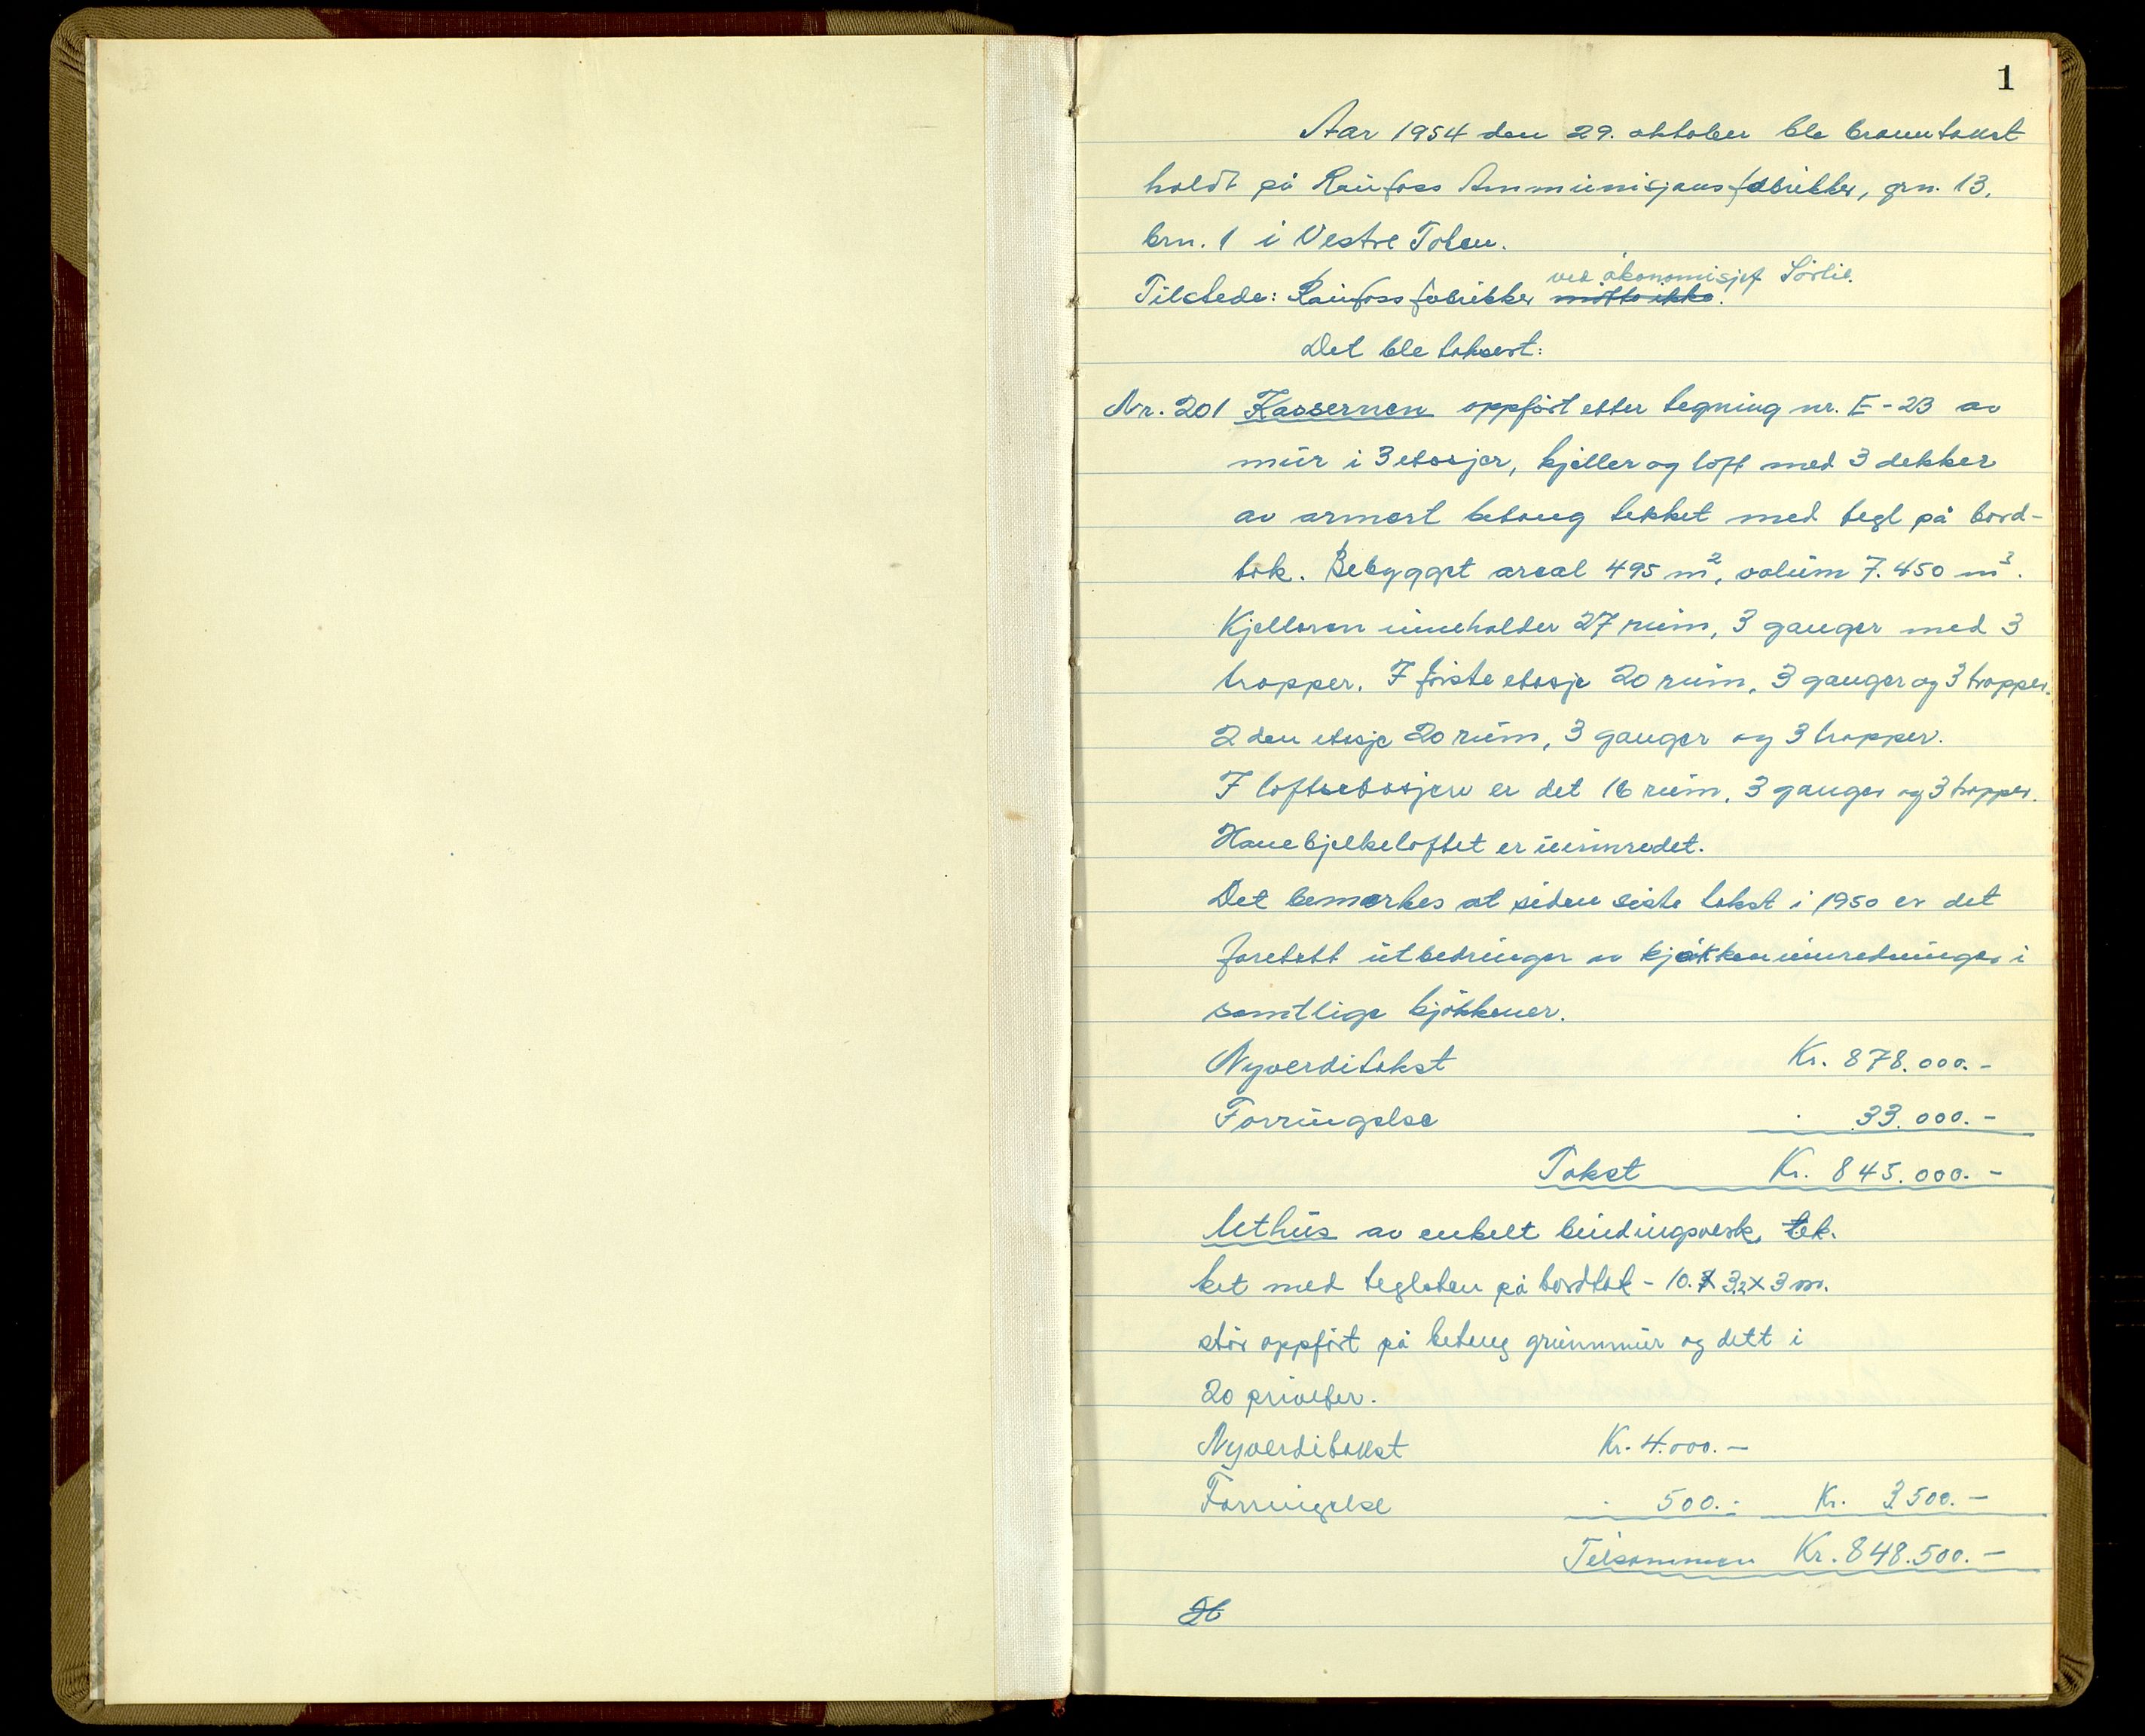 1
Aar 1954 den 29. oktober ble branntakst
holdt på Raufoss Ammunisjonsfabrikker, grn. 13,
brn. 1 i Vestre Toten.
ved økonomisjef Sörlie.
Tilstede: Raufoss fabrikker møtte ikke.
Det ble taksert:
Nr. 201 Kassernen oppfört etter tegning nr. E-23 av
mur i 3 etasjer, kjeller og loft med 3 dekker
av armert betong tekket med tegl på bord-
tak. Bebygget areal 495 m², volum 7.450 m³.
Kjelleren inneholder 27 rum, 3 ganger med 3
trapper. I förste etasje 20 rum, 3 ganger og 3 trapper.
2 den etasje 20 rum, 3 ganger og 3 trapper.
I loftsetasjen er det 16 rum, 3 ganger og 3 trapper.
Hanebjelkeloftet er uinnredet.
Det bemerkes at siden siste takst i 1950 er det
foretatt utbedringer av kjökkeninnredninger i
samtlige kjökkener.
Nyverditakst Kr. 878.000.-
Forringelse " 33.000.-
Takst Kr. 845.000.-
Uthus av enkelt bindingsverk, tek-
ket med teglsten på bordtak - 10. x 3,2 x 3 m.
stör oppfört på betong grunnmur og delt i
20 privéter.
Nyverditakst Kr. 4.000.-
Forringelse " 500.- Kr. 3.500.-
Tilsammen Kr. 848.500.-